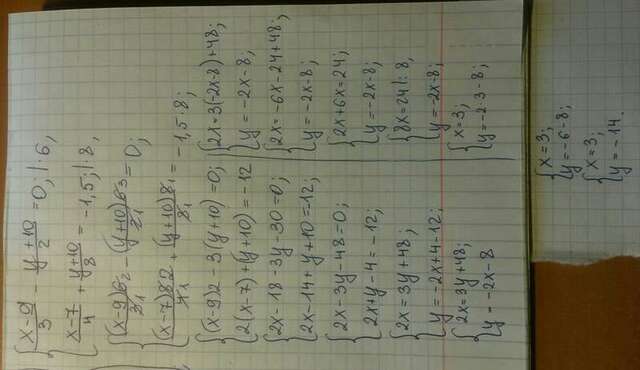 { x-9/3 - y+10/2 = 0; |·6,
{ x-7/4 + y+10/8 = -1,5; |·8,
{ (x-9)6 2/3 1 - (y+10)6 3/2 1 = 0;
{ (x-7)8 2/4 1 + (y+10)8 1/8 1 = -1,5·8;
{ (x-9)2 - 3(y+10) = 0;
{ 2(x-7) + (y+10) = -12
{ 2x - 18 - 3y - 30 = 0;
{ 2x - 14 + y + 10 = -12;
{ 2x - 3y - 48 = 0;
{ 2x + y - 4 = -12;
{ 2x = 3y + 48;
{ y = -2x + 4 - 12;
{ 2x = 3y + 48;
{ y = -2x - 8
{ 2x = 3(-2x-8) + 48;
{ y = -2x - 8;
{ 2x = -6x - 24 + 48;
{ y = -2x - 8;
{ 2x + 6x = 24;
{ y = -2x - 8;
{ 8x = 24 |: 8,
{ y = -2x - 8;
{ x = 3;
{ y = -2·3 - 8;
{ x = 3;
{ y = -6 - 8;
{ x = 3;
{ y = -14.